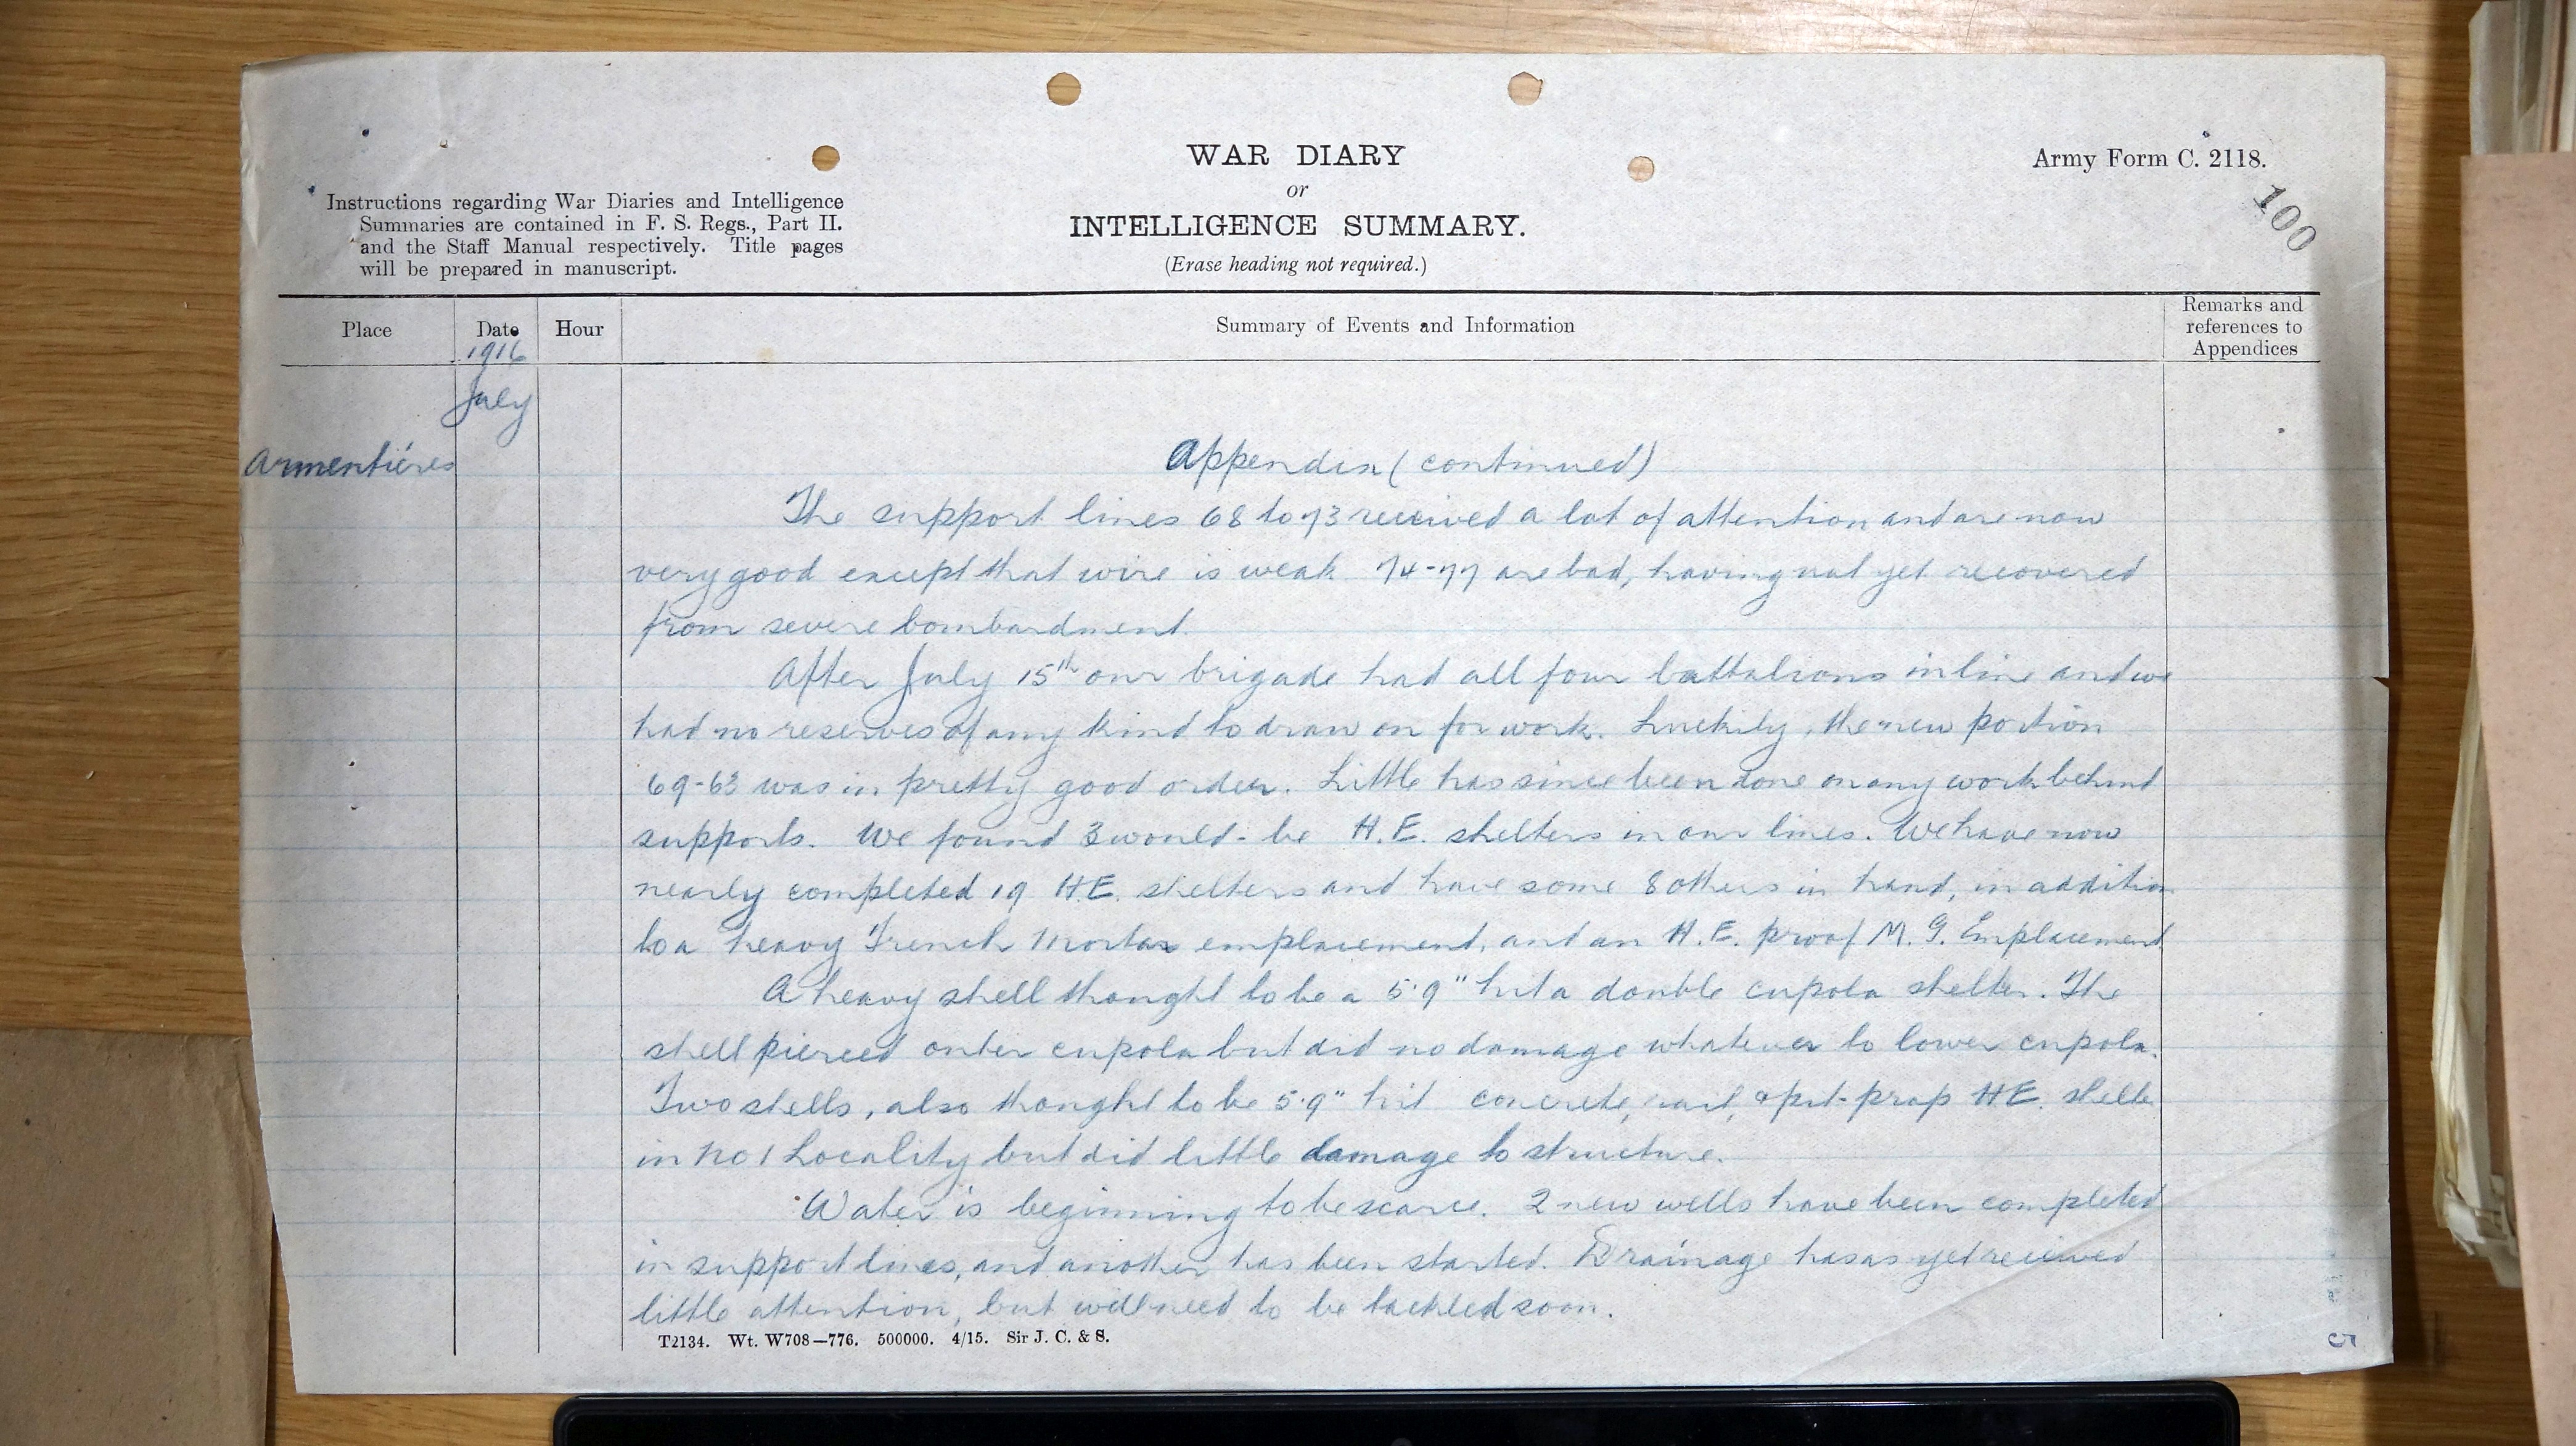 WAR DIARY
or
INTELLIGENCE SUMMARY.
(Erase heading not required.)
Army Form C. 2118.
100
Instructions regarding War Diaries and Intelligence
Summaries are contained in F. S. Regs., Part II.
and the Staff Manual respectively. Title pages
will be prepared in manuscript.
Place
Date
Hour
Summary of Events and Information
Remarks and
references to
Appendices
1916
July
Armentières
Appendix (continued)
The support lines 68 to 73 received a lot of attention and are now
very good except that wire is weak. 74-77 are bad, having not yet recovered
from severe bombardment.
After July 15th our brigade had all four battalions in line and we
had no reserves of any kind to draw on for work. Luckily, the new portion
69-63 was in pretty good order. Little has since been done on any work behind
supports. We found 3 would-be H.E. shelters in our lines. We have now
nearly completed 19 H.E. shelters and have some 8 others in hand, in addition
to a heavy Trench Mortar emplacement, and an H.E. proof M.G. Emplacement
A heavy shell thought to be a 5.9" hit a double cupola shelter. The
shell pierced outer cupola but did no damage whatever to lower cupola.
Two shells, also thought to be 5.9" hit concrete, rail, & pit-prop H.E. shelter
in No 1 Locality but did little damage to structure.
Water is beginning to be scarce. 2 new wells have been completed
in support lines, and another has been started. Drainage has as yet received
little attention, but will need to be tackled soon.
T2134. Wt. W708—776. 500000. 4/15. Sir J. C. & S.